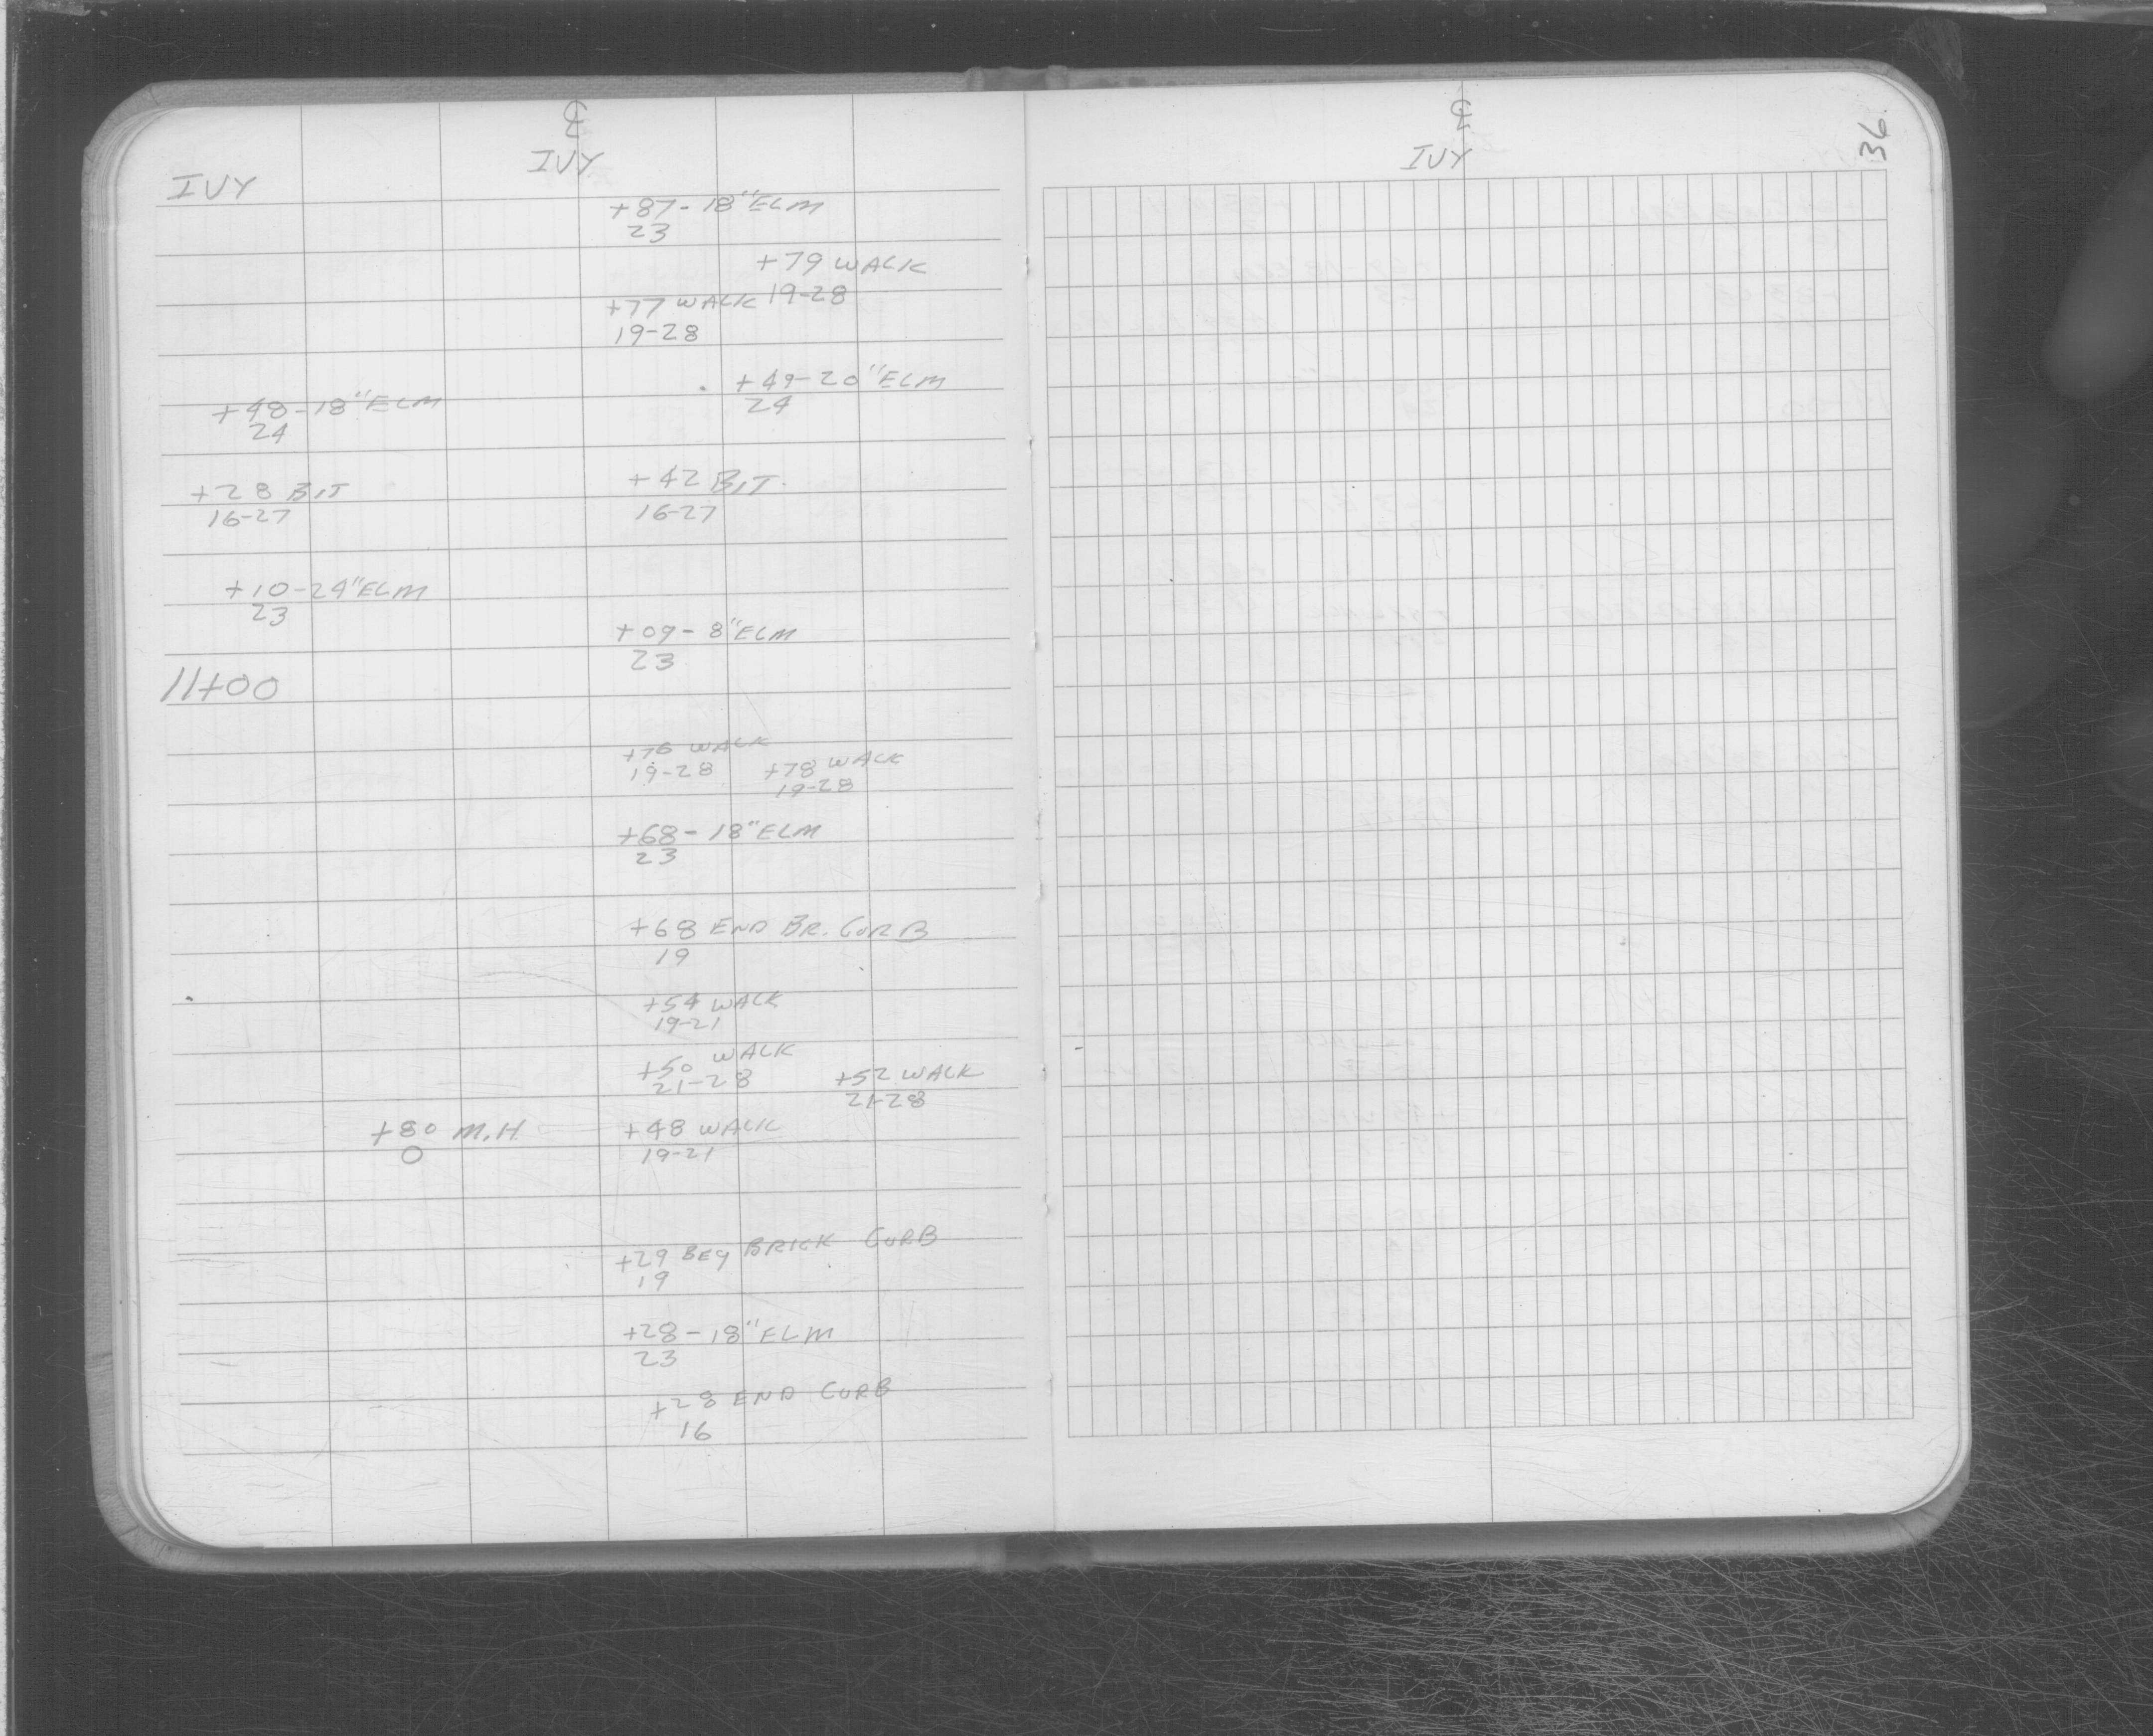 ℄
IVY
IVY
+87-18"ELM
23
+79 WALK
19-28
+77 WALK
19-28
+49-20"ELM
24
+48-18"ELM
24
+28 BIT
16-27
+42 BIT.
16-27
+10-24"ELM
23
+09-8"ELM
23
11+00
+76 WALK
19-28
+78 WALK
19-28
+68-18"ELM
23
+68 END BR. CURB
19
+54 WALK
19-21
+50 WALK
21-28
+52 WALK
21-28
+80 M.H
0
+48 WALK
19-21
+29 BEG BRICK CURB
19
+28-18"ELM
23
+28 END CURB
16
℄
IVY
36